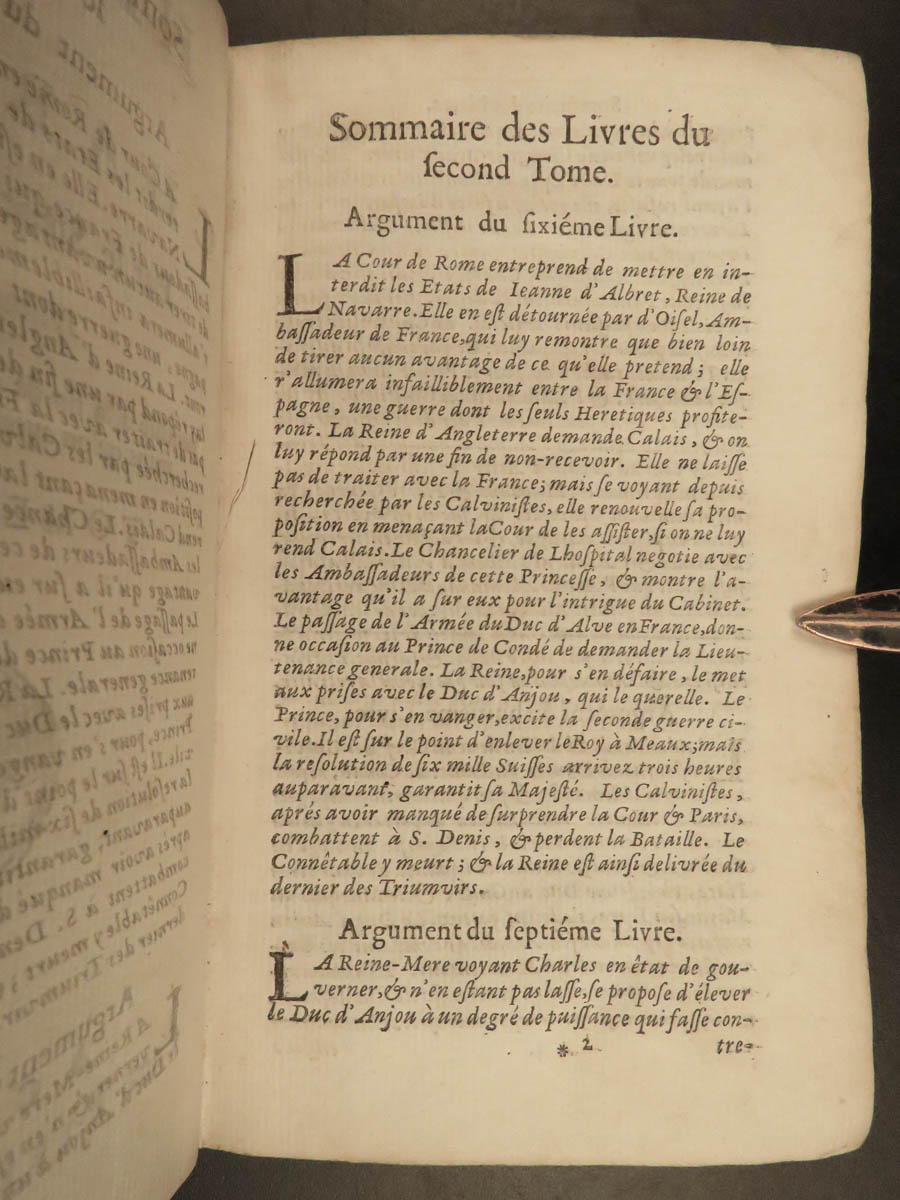 Sommaire des Livres du
ſecond Tome.
Argument du ſixiéme Livre.
LA Cour de Rome entreprend de mettre en in-
terdit les Etats de Ieanne d'Albret, Reine de
Navarre. Elle en eſt détournée par d'Oiſel, Am-
baſſadeur de France, qui luy remontre que bien loin
de tirer aucun avantage de ce qu'elle pretend; elle
r'allumera infailliblement entre la France & l'Eſ-
pagne, une guerre dont les ſeuls Heretiques profite-
ront. La Reine d'Angleterre demande Calais, & on
luy répond par une fin de non-recevoir. Elle ne laiſſe
pas de traiter avec la France; mais ſe voyant depuis
recherchée par les Calviniſtes, elle renouvelle ſa pro-
poſition en menaçant la Cour de les aſſiſter, ſi on ne luy
rend Calais. Le Chancelier de Lhoſpital negotie avec
les Ambaſſadeurs de cette Princeſſe, & montre l'a-
vantage qu'il a ſur eux pour l'intrigue du Cabinet.
Le paſſage de l'Armée du Duc d'Alve en France, don-
ne occaſion au Prince de Condé de demander la Lieu-
tenance generale. La Reine, pour s'en défaire, le met
aux priſes avec le Duc d'Anjou, qui le querelle. Le
Prince, pour s'en vanger, excite la ſeconde guerre ci-
vile. Il eſt ſur le point d'enlever le Roy à Meaux; mais
la reſolution de ſix mille Suiſſes arrivez trois heures
auparavant, garantit ſa Majeſté. Les Calviniſtes,
aprés avoir manqué de ſurprendre la Cour & Paris,
combattent à S. Denis, & perdent la Bataille. Le
Connêtable y meurt; & la Reine eſt ainſi delivrée du
dernier des Triumvirs.
Argument du ſeptiéme Livre.
LA Reine-Mere voyant Charles en état de gou-
verner, & n'en eſtant pas laſſe, ſe propoſe d'élever
le Duc d'Anjou à un degré de puiſſance qui faſſe con-
* 2 tre-